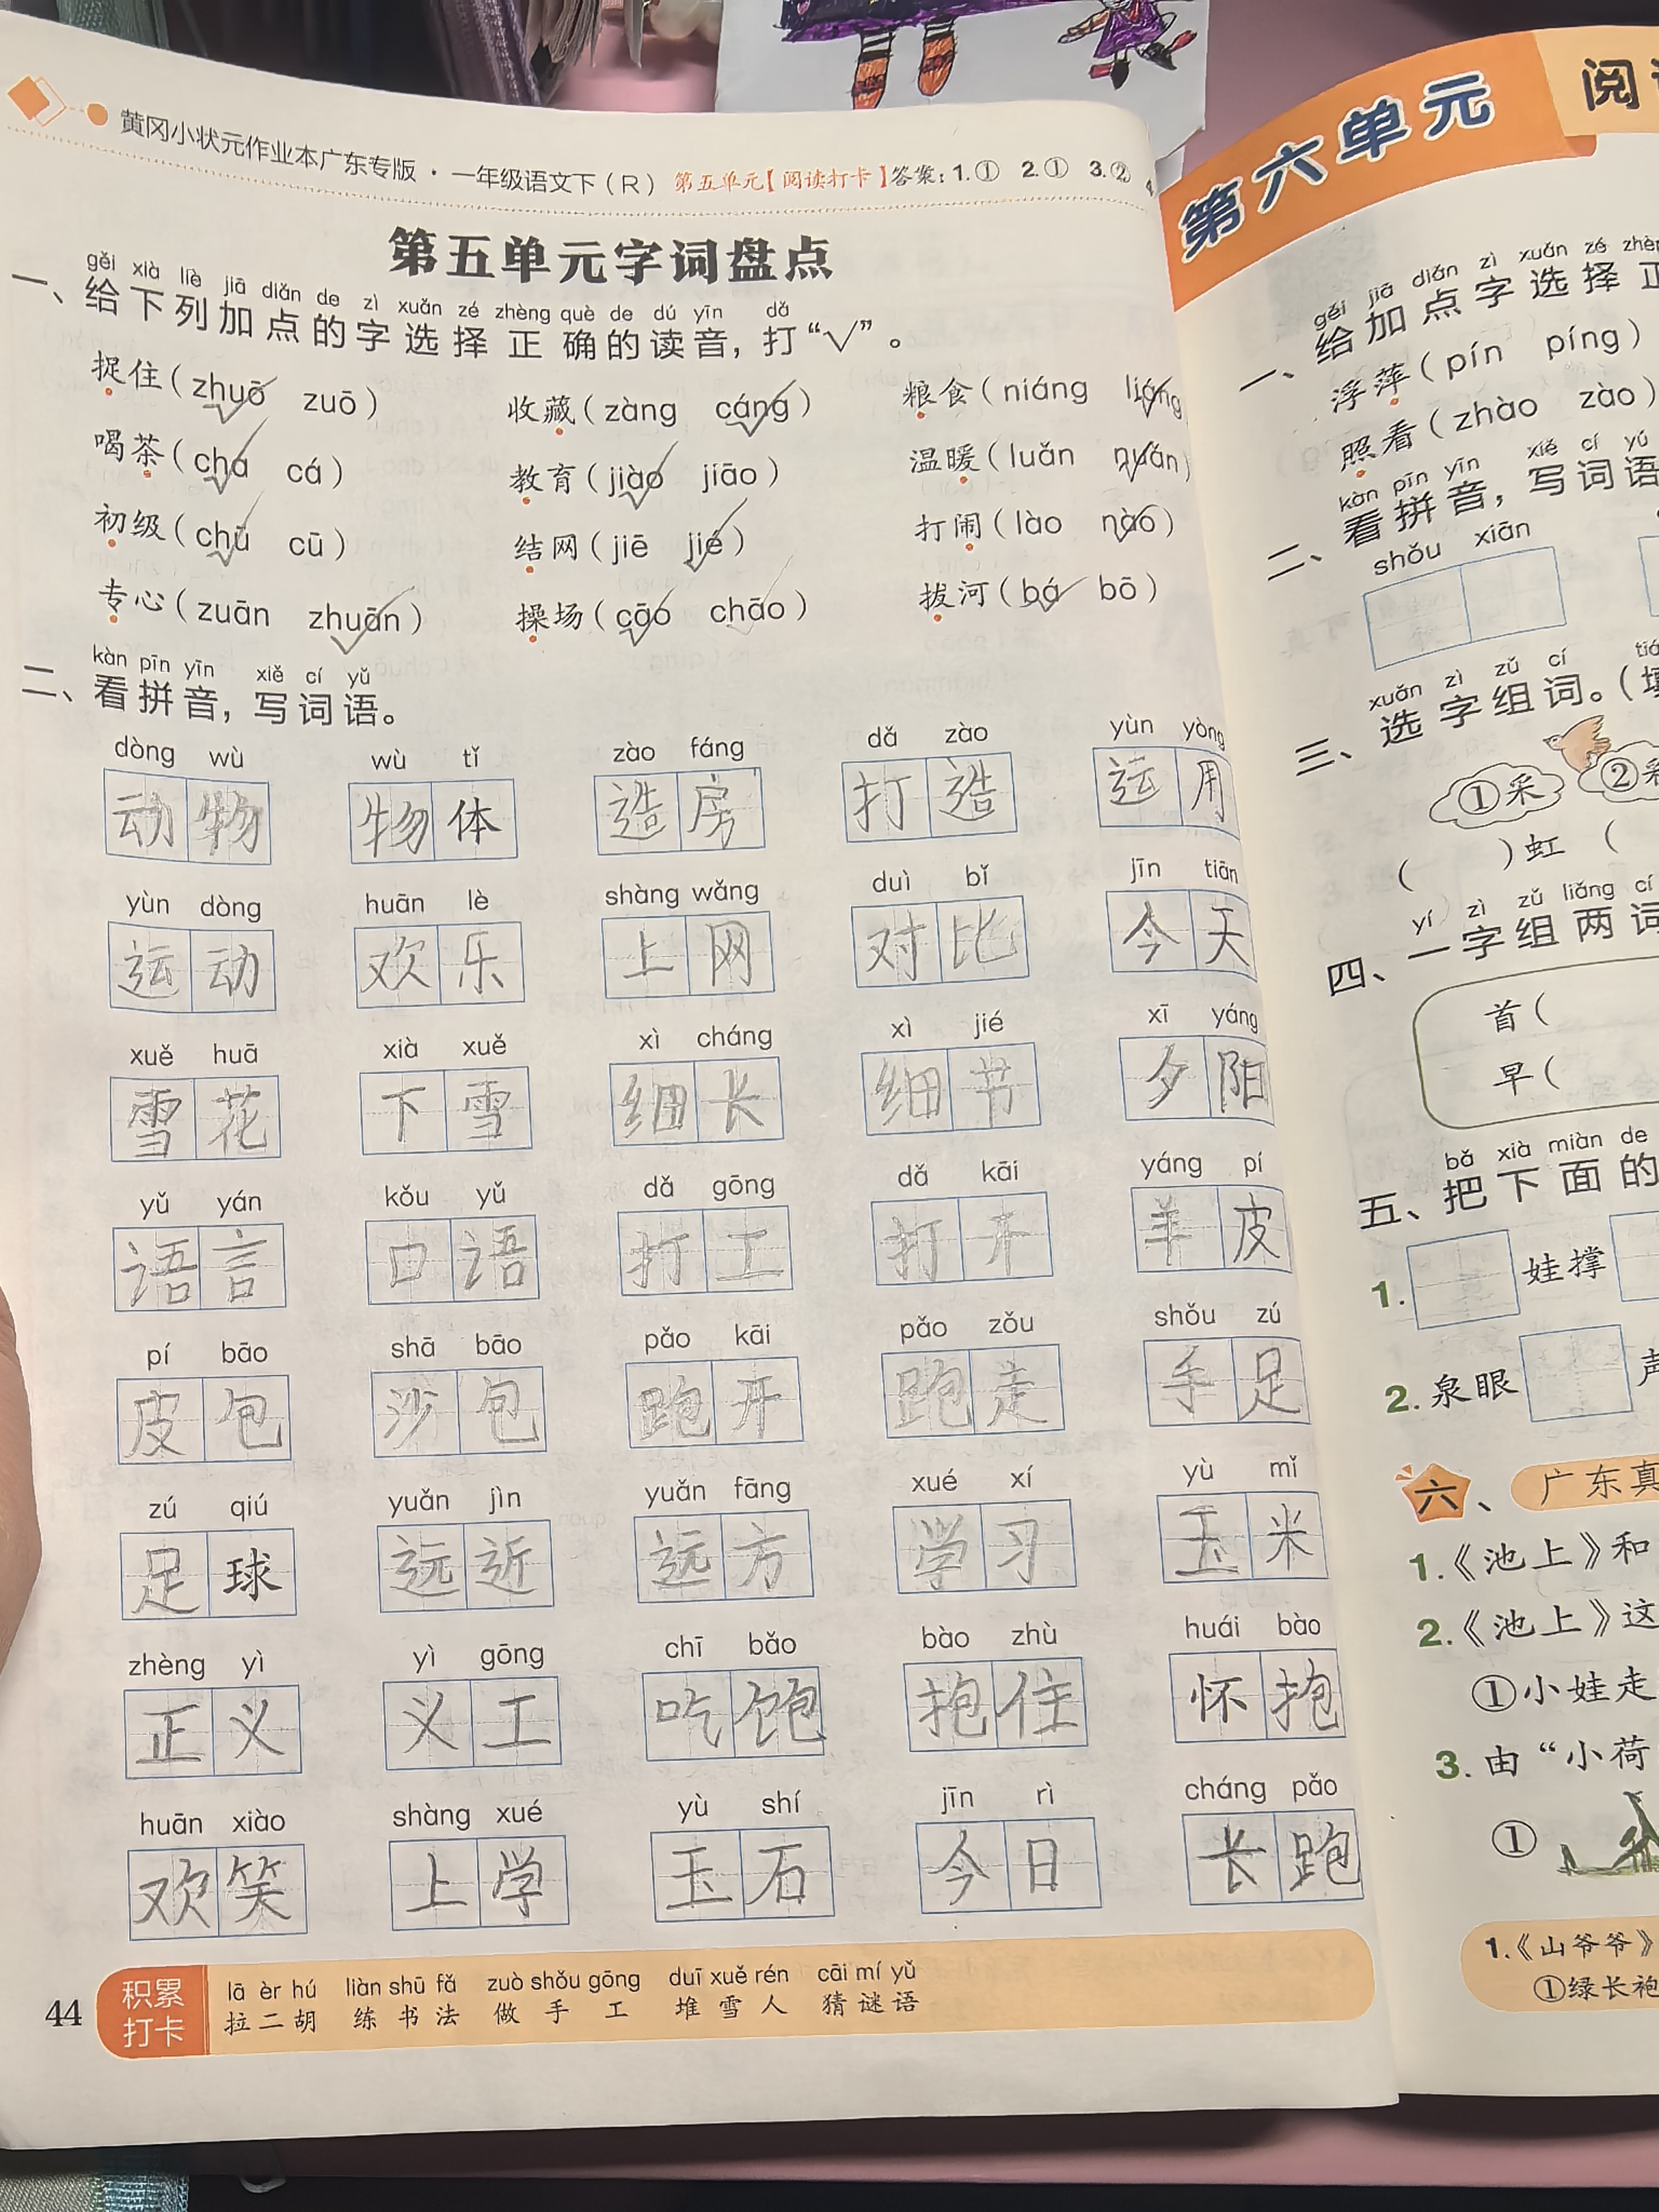 黄冈小状元作业本广东专版·一年级语文下（R） 第五单元【阅读打卡】答案：1.① 2.① 3.②
第五单元字词盘点
gěi xià liè jiā diǎn de zì xuǎn zé zhèng què de dú yīn dǎ
一、给下列加点的字选择正确的读音，打“√”。
捉住（zhuō zuō） 收藏（zàng cáng） 粮食（niáng liáng
喝茶（chá cá） 教育（jiào jiāo） 温暖（luǎn nuǎn）
初级（chū cū） 结网（jiē jié） 打闹（lào nào）
专心（zuān zhuān） 操场（cāo chāo） 拔河（bá bō）
kàn pīn yīn xiě cí yǔ
二、看拼音，写词语。
dòng wù wù tǐ zào fáng dǎ zào yùn yòng
动物 物体 造房 打造 运用
yùn dòng huān lè shàng wǎng duì bǐ jīn tiān
运动 欢乐 上网 对比 今天
xuě huā xià xuě xì cháng xì jié xī yáng
雪花 下雪 细长 细节 夕阳
yǔ yán kǒu yǔ dǎ gōng dǎ kāi yáng pí
语言 口语 打工 打开 羊皮
pí bāo shā bāo pǎo kāi pǎo zǒu shǒu zú
皮包 沙包 跑开 跑走 手足
zú qiú yuǎn jìn yuǎn fāng xué xí yù mǐ
足球 远近 远方 学习 玉米
zhèng yì yì gōng chī bǎo bào zhù huái bào
正义 义工 吃饱 抱住 怀抱
huān xiào shàng xué yù shí jīn rì cháng pǎo
欢笑 上学 玉石 今日 长跑
积累打卡
lā èr hú liàn shū fǎ zuò shǒu gōng duī xuě rén cāi mí yǔ
拉二胡 练书法 做手工 堆雪人 猜谜语
44
第六单元 阅
gěi jiā diǎn zì xuǎn zé
一、给加点字选择
浮萍（pín píng）
照看（zhào zào）
kàn pīn yīn xiě cí yǔ
二、看拼音，写词语
shǒu xiān
xuǎn zì zǔ cí
三、选字组词。（
①采 ②
（ ）虹（
yí zì zǔ liǎng cí
四、一字组两词
首（
早（
bǎ xià miàn de
五、把下面的
1. 娃撑
2.泉眼
六、广东真
1.《池上》和
2.《池上》这
①小娃走
3.由“小荷
①
1.《山爷爷》
①绿长袍